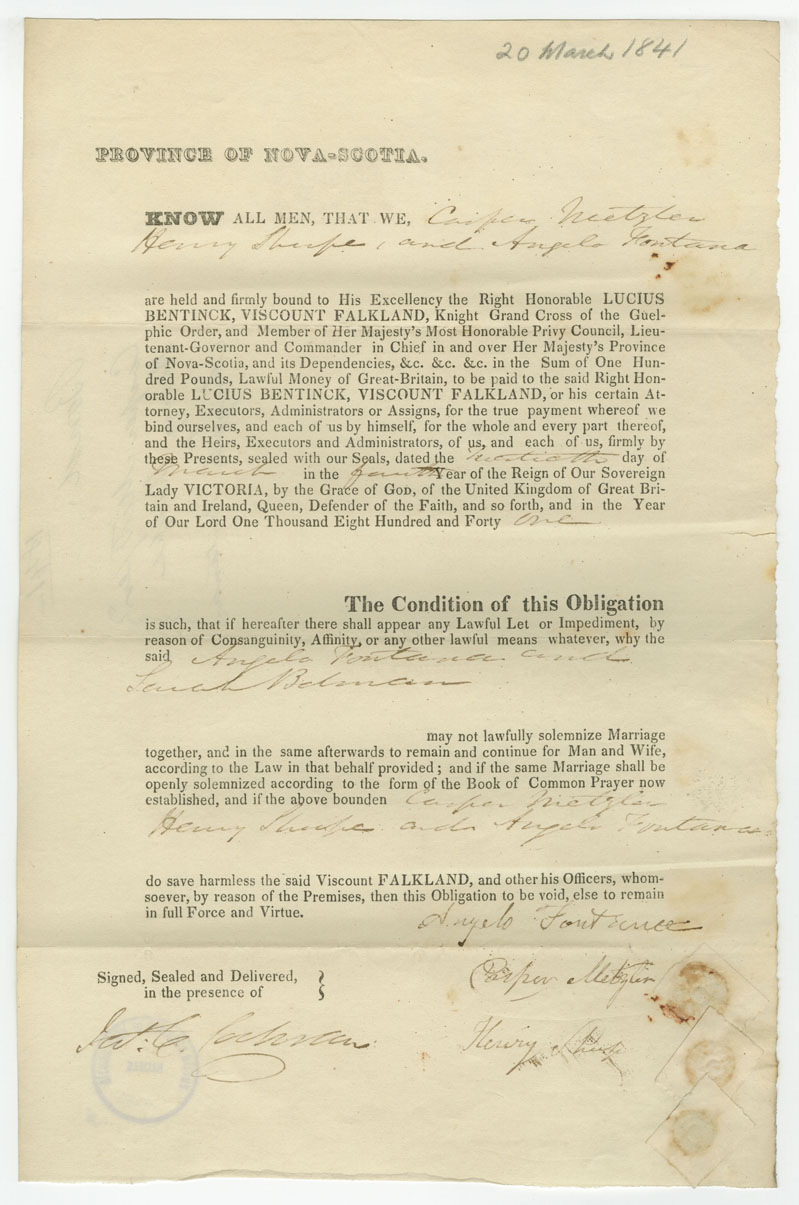 20 March 1841
PROVINCE OF NOVA-SCOTIA.
KNOW ALL MEN, THAT WE, Casper Metzler
Henry Shupe, and Angelo Fontana
are held and firmly bound to His Excellency the Right Honorable LUCIUS
BENTINCK, VISCOUNT FALKLAND, Knight Grand Cross of the Guel-
phic Order, and Member of Her Majesty's Most Honorable Privy Council, Lieu-
tenant-Governor and Commander in Chief in and over Her Majesty's Province
of Nova-Scotia, and its Dependencies, &c. &c. &c. in the Sum of One Hun-
dred Pounds, Lawful Money of Great-Britain, to be paid to the said Right Hon-
orable LUCIUS BENTINCK, VISCOUNT FALKLAND, or his certain At-
torney, Executors, Administrators or Assigns, for the true payment whereof we
bind ourselves, and each of us by himself, for the whole and every part thereof,
and the Heirs, Executors and Administrators, of us, and each of us, firmly by
these Presents, sealed with our Seals, dated the day of
March in the fourth Year of the Reign of Our Sovereign
Lady VICTORIA, by the Grace of God, of the United Kingdom of Great Bri-
tain and Ireland, Queen, Defender of the Faith, and so forth, and in the Year
of Our Lord One Thousand Eight Hundred and Forty one
The Condition of this Obligation
is such, that if hereafter there shall appear any Lawful Let or Impediment, by
reason of Consanguinity, Affinity, or any other lawful means whatever, why the
said Angelo Fontana and
Sarah Bolman
may not lawfully solemnize Marriage
together, and in the same afterwards to remain and continue for Man and Wife,
according to the Law in that behalf provided; and if the same Marriage shall be
openly solemnized according to the form of the Book of Common Prayer now
established, and if the above bounden Casper Metzler
Henry Shupe and Angelo Fontana
do save harmless the said Viscount FALKLAND, and other his Officers, whom-
soever, by reason of the Premises, then this Obligation to be void, else to remain
in full Force and Virtue.
Angelo Fontana
Signed, Sealed and Delivered,
in the presence of
Casper Metzler
Henry Shupe
Jas. C. Cochran